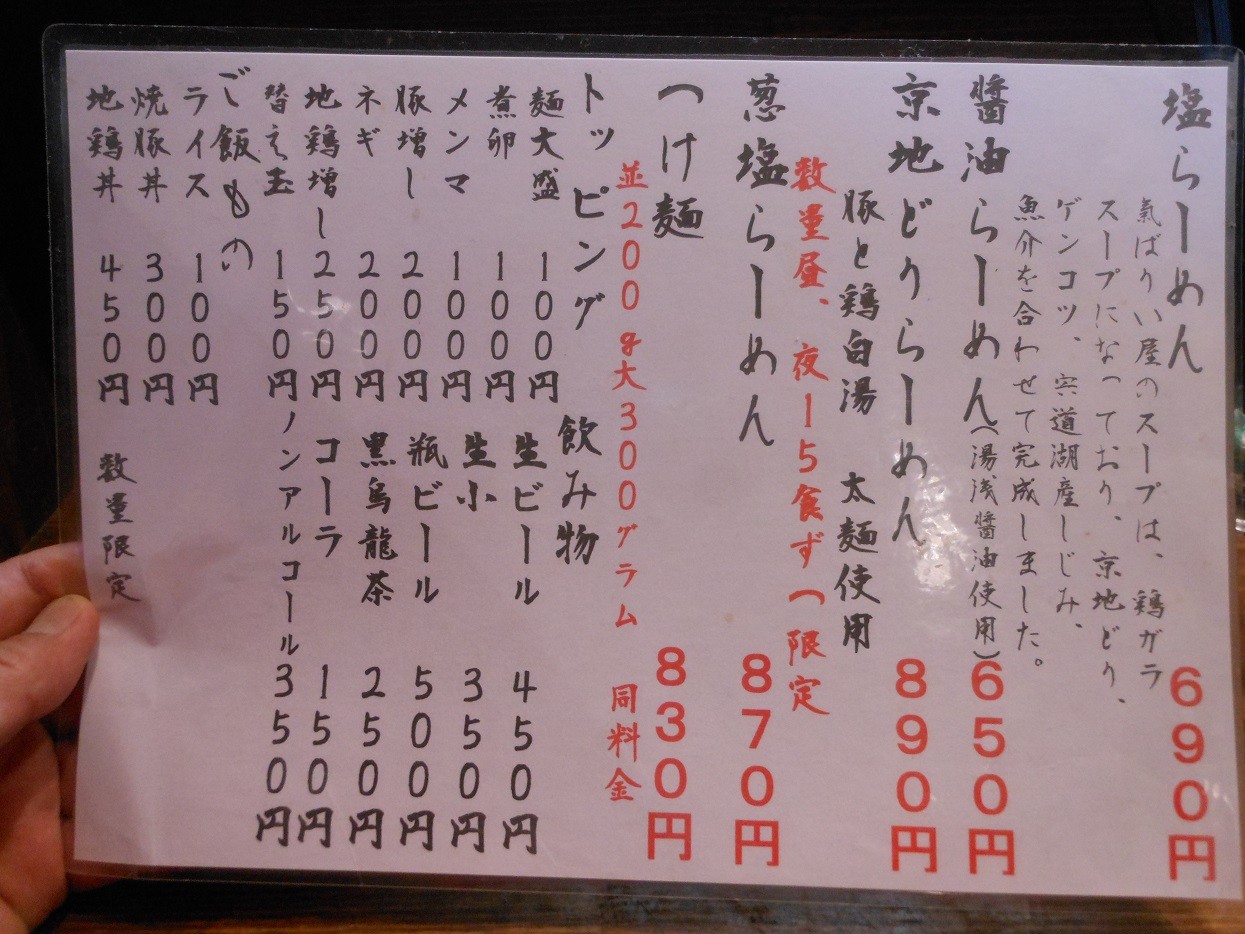 塩らーめん 690円
氣ばりい屋のスープは、鶏ガラ
スープになっており、京地どり、
ゲンコツ、宍道湖産しじみ、
魚介を合わせて完成しました。
醬油らーめん(湯浅醬油使用)650円
京地どりらーめん 890円
豚と鶏白湯 太麺使用
数量昼、夜15食ずつ限定
葱塩らーめん 870円
つけ麺 830円
並200g大300グラム 同料金
トッピング
麺大盛 100円
煮卵 100円
メンマ 100円
豚増し 200円
ネギ 200円
地鶏増し 250円
替え玉 150円
ご飯もの
ライス 100円
焼豚丼 300円
地鶏丼 450円 数量限定
飲み物
生ビール 450円
生小 350円
瓶ビール 500円
黒烏龍茶 250円
コーラ 150円
ノンアルコール 350円